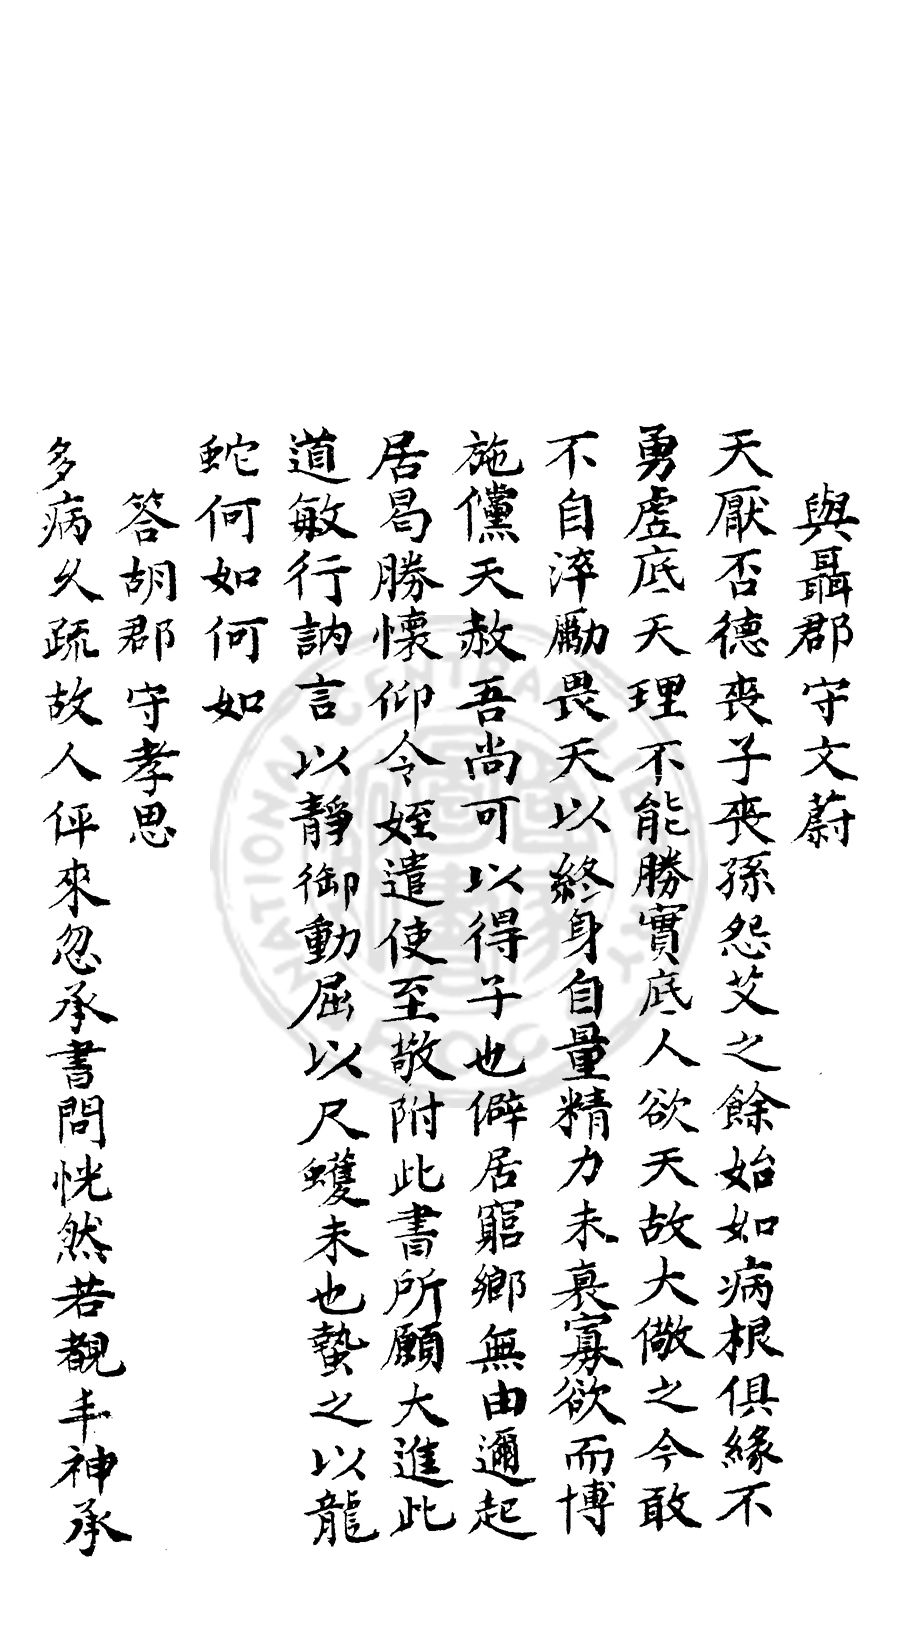 與聶郡守文蔚
天厭否德喪子喪孫怨艾之餘始如病根俱緣不
勇虛底天理不能勝實底人欲天故大儆之今敢
不自淬勵畏天以終身自量精力未衰寡欲而博
施儻天赦吾尚可以得子也僻居窮鄉無由邇起
居曷勝懷仰令姪遣使至敬附此書所願大進此
道敏行訥言以靜御動屈以尺蠖未也蟄之以龍
蛇何如何如
答胡郡守孝思
多病久疏故人伻來忽承書問恍然若觀丰神承